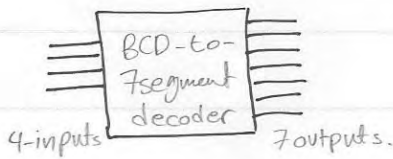 BCD-to-
7segment
decoder
4-inputs
7outputs.